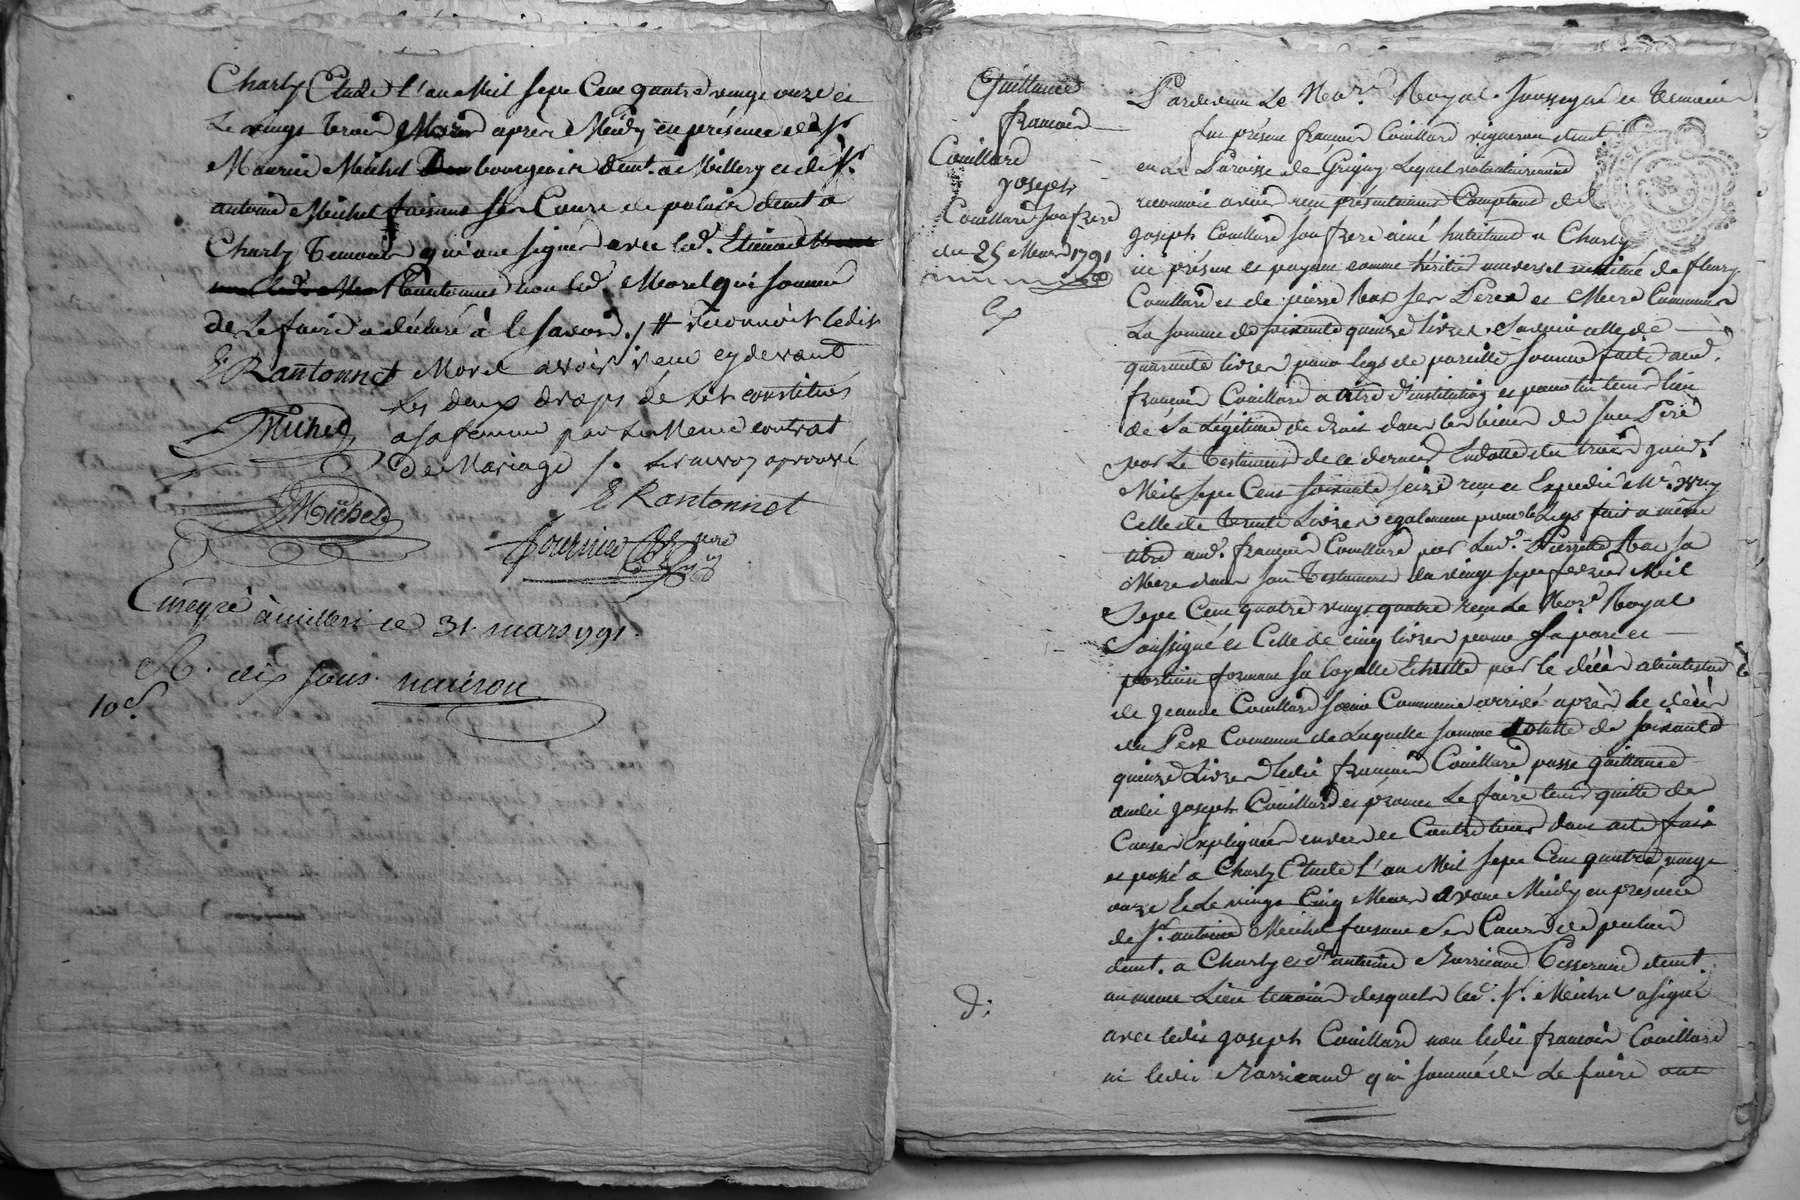 Charly Etude l'an Mil sept Cent quatre vingt onze et
Le vingt trois Mars apres Midy en présence de Sr
Maurice Michel bourgeois demt. a Millery et de Sr.
antoine Michel faisant son Cours de palais demt a
Charly temoins qui ont signé avec led. Etienne
Rantonnet non led. Morel qui sommé
de Le faire a déclaré à le savoir ./. # reconnoit ledit
Morel avoir reçu cy devant
Les deux draps de Lit constitués
a sa femme par Le Meme contrat
de Mariage ./. Le renvoy aprouvé
E Rantonnet
Michel
E Rantonnet
Michel
fournier nore
Enregré à milleri ce 31 mars 1791.
R. dix sous
10 s.
Quittance
francois
Couillard
a
joseph
Couillard son frere
du 25 Mars 1791
Pardevant Le Nore. Royal soussigné et temoins
fut présent francois Couillard vigneron demt.
en La Paroisse de Grigny Lequel volontairement
reconnoit avoir reçu présentement Comptant de
joseph Couillard son frere ainé habitant a Charly
ici présent et payant comme héritier universel institué de fleury
Couillard et de pierrette Rax ses Pere et Mere Communs
La somme de soixante quinze livres. Savoir celle de
quarante livres pour legs de pareille somme faite aud.
francois Couillard a titre d'institution et pour lui tenir lieu
de sa Légitime de droit dans les biens de son Pere
par Le Testament de ce dernier du trois
Mil sept Cent soixante seize reçu et Expedié Me.
Celle de trente Livres egalement pour le Legs fait a même
titre aud. francois Couillard par lad. Pierrette Rax sa
Mere dans son Testament du vingt sept fevrier Mil
Sept Cent quatre vingt quatre reçu Le Nore Royal
Soussigné et Celle de cinq livres pour sa part et
portion formant sa Echutte par le décès abintestat
de jeanne Couillard soeur Commune arrivé après le décès
du Pere Commun de Laquelle somme totale de soixante
quinze Livres ledit francois Couillard passe quittance
audit joseph Couillard et promet Le faire tenir quitte des
Causes Expliquées envers et Contre tous dont acte fait
et passé a Charly Etude l'an Mil sept Cent quatre vingt
onze et Le vingt Cinq Mars avant Midy en présence
de Sr. antoine Michel faisant son Cours de palais
demt. a Charly et de antoine Barricand Tisserand demt.
au meme Lieu temoins desquels led. Sr. Michel a signé
avec ledit joseph Couillard non ledit francois Couillard
ni ledit Barricand qui sommés de Le faire ont